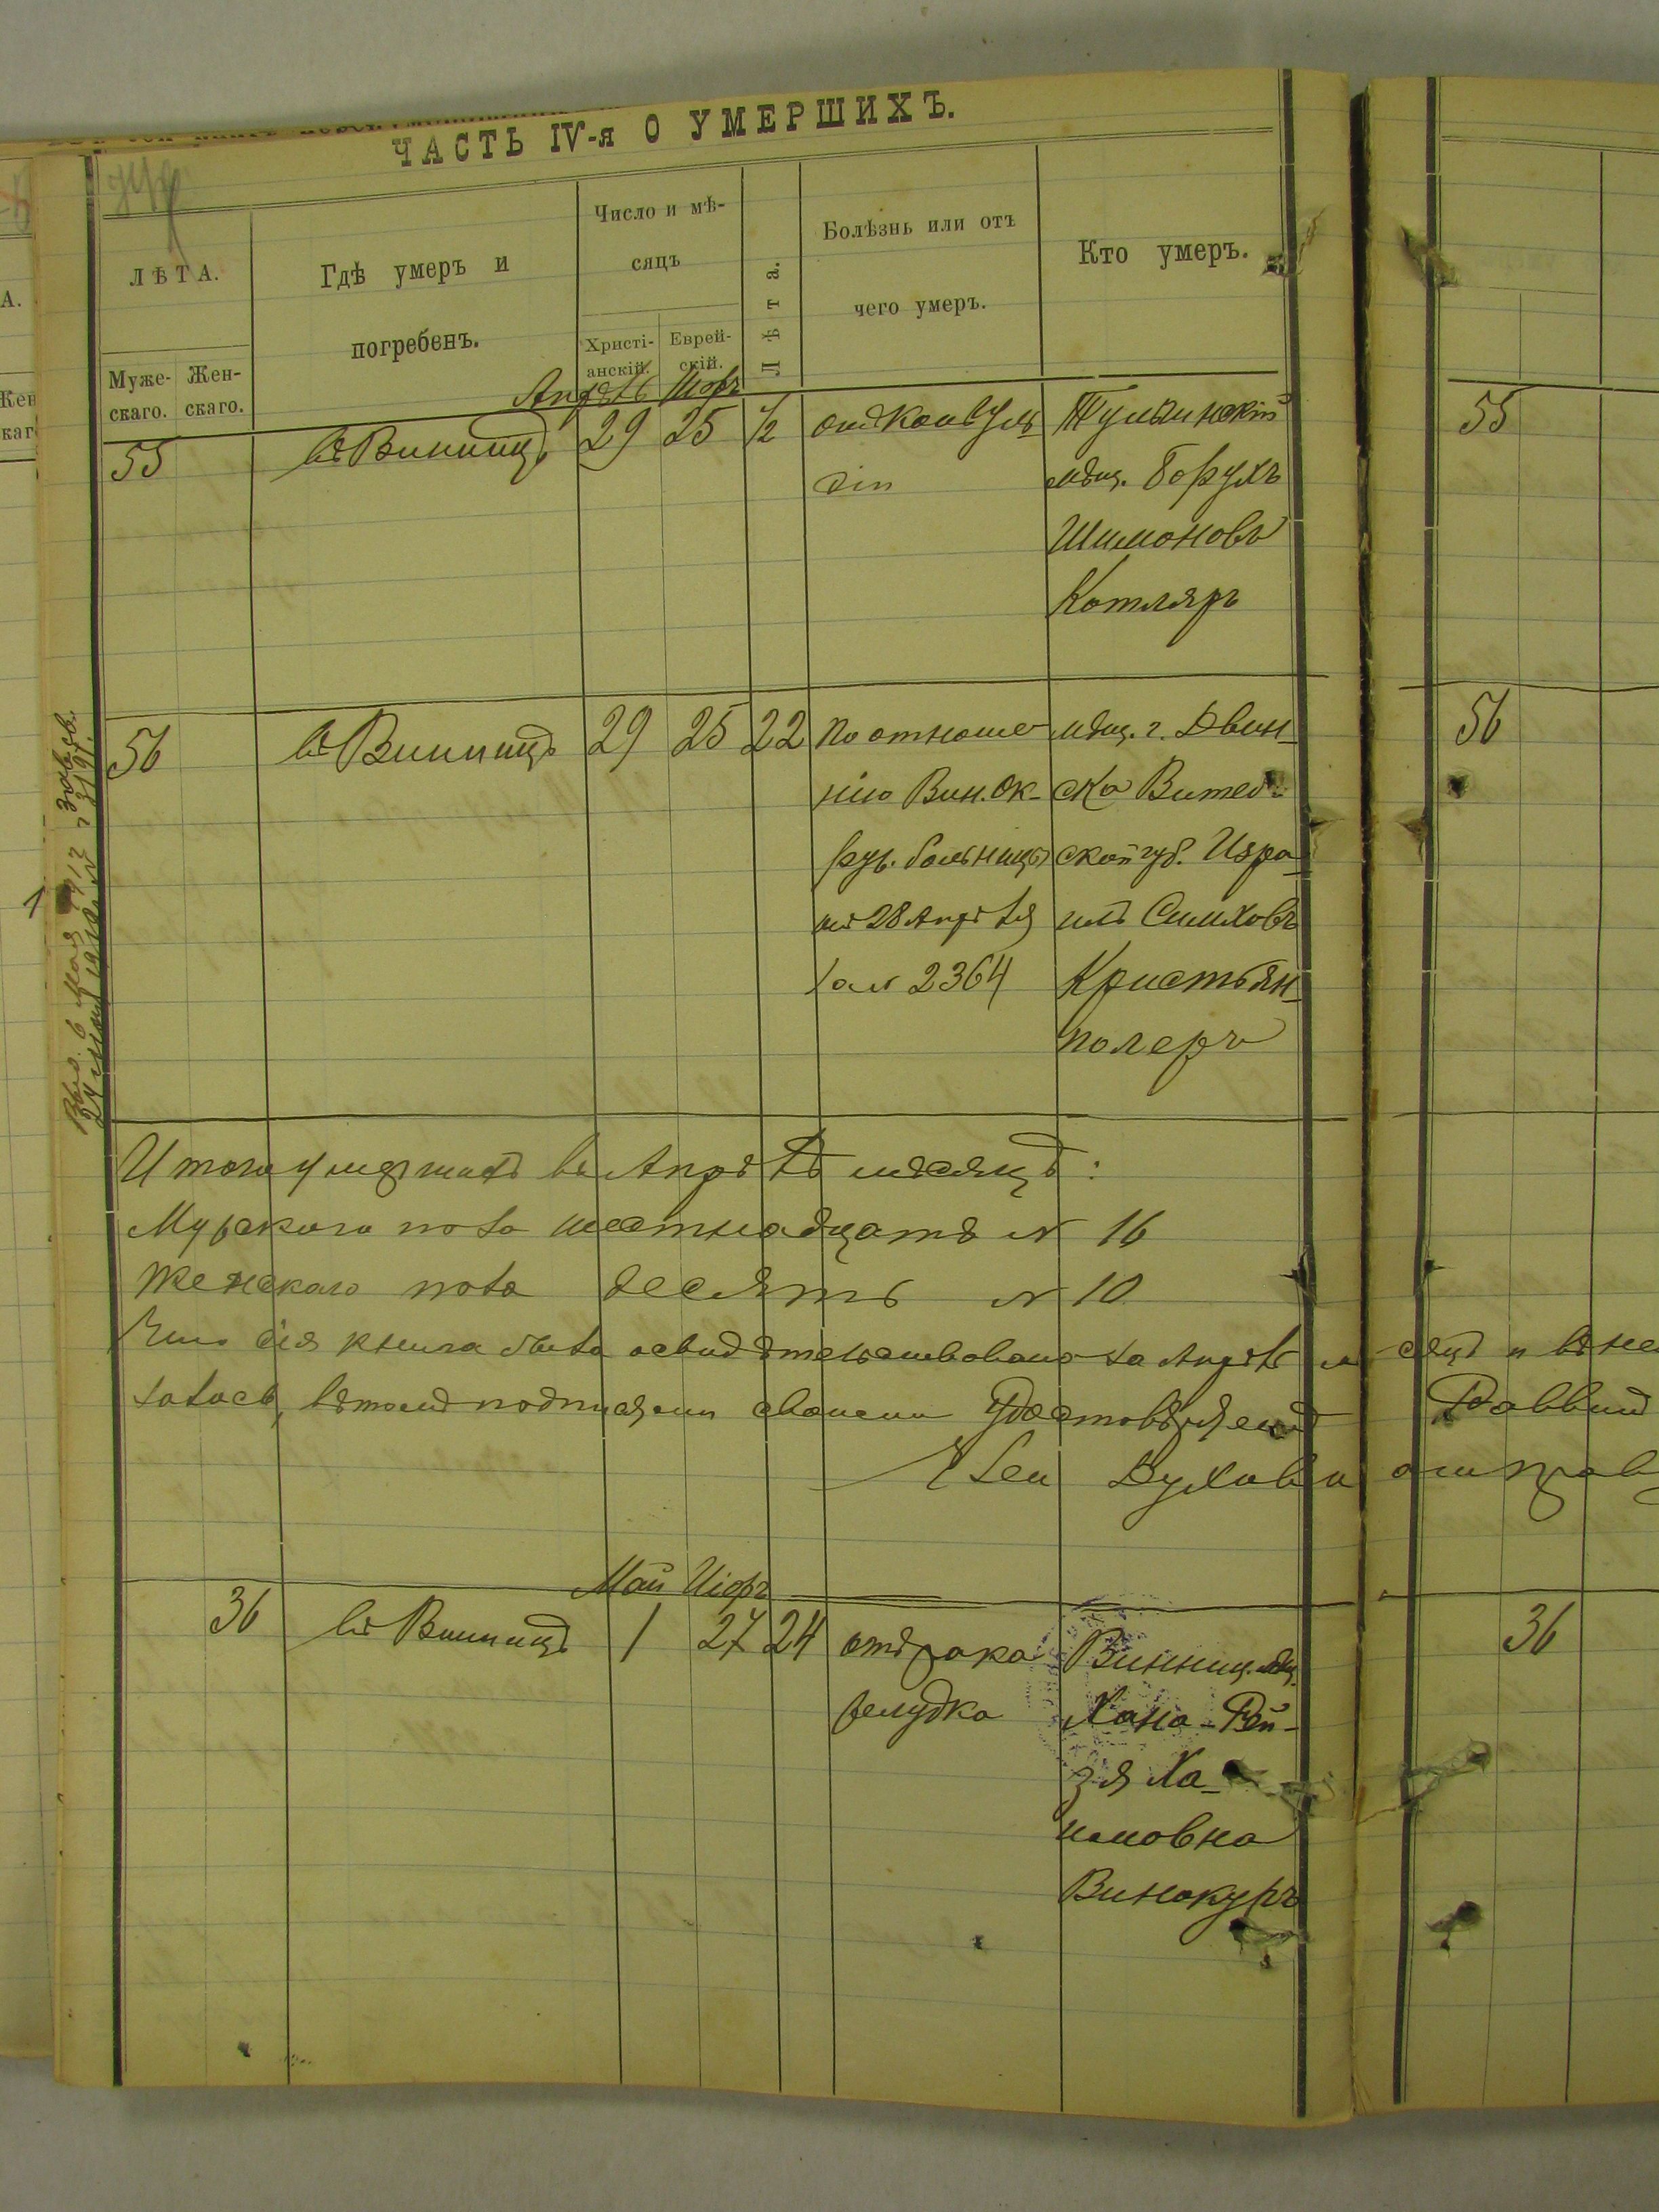 ЧАСТЬ IV-я О УМЕРШИХЪ.
ЛѢТА.
Мужескаго. Женскаго.
Гдѣ умеръ и
погребенъ.
Число и мѣсяцъ
Христіанскій.
Еврейскій.
Лѣта.
Болѣзнь или отъ
чего умеръ.
Кто умеръ.
Апрѣль Іюръ
55 въ Винницѣ 29 25 1/2 от конвульсіи
Тульчинскій
мѣщ. Борухъ
Шимоновъ
Котляръ
55
56 въ Винницѣ 29 25 22
по отноше
нію Вин. Ок-
руж. больницы
отъ 28 Апрѣля
за № 2364
мѣщ. г. Двин-
ска Витеб-
ской губ. Изра-
иль Симховъ
Кристьян-
полеръ
56
Выд. 6 Мая 1912 г.
Итого умершихъ въ Апрѣлѣ мѣсяцѣ:
Мужскаго пола шестнадцать № 16
Женскаго пола десять № 10
Что сія книга была освидѣтельствована за Апрѣль
въ томъ подписями своими удостовѣряемъ Раввинъ
Член Духовн
Май Іюръ
36 въ Винницѣ 1 27 24
отъ рака
желудка
Винниц. мѣщ.
Хана-Рей-
зя Ха-
имовна
Винокуръ
36